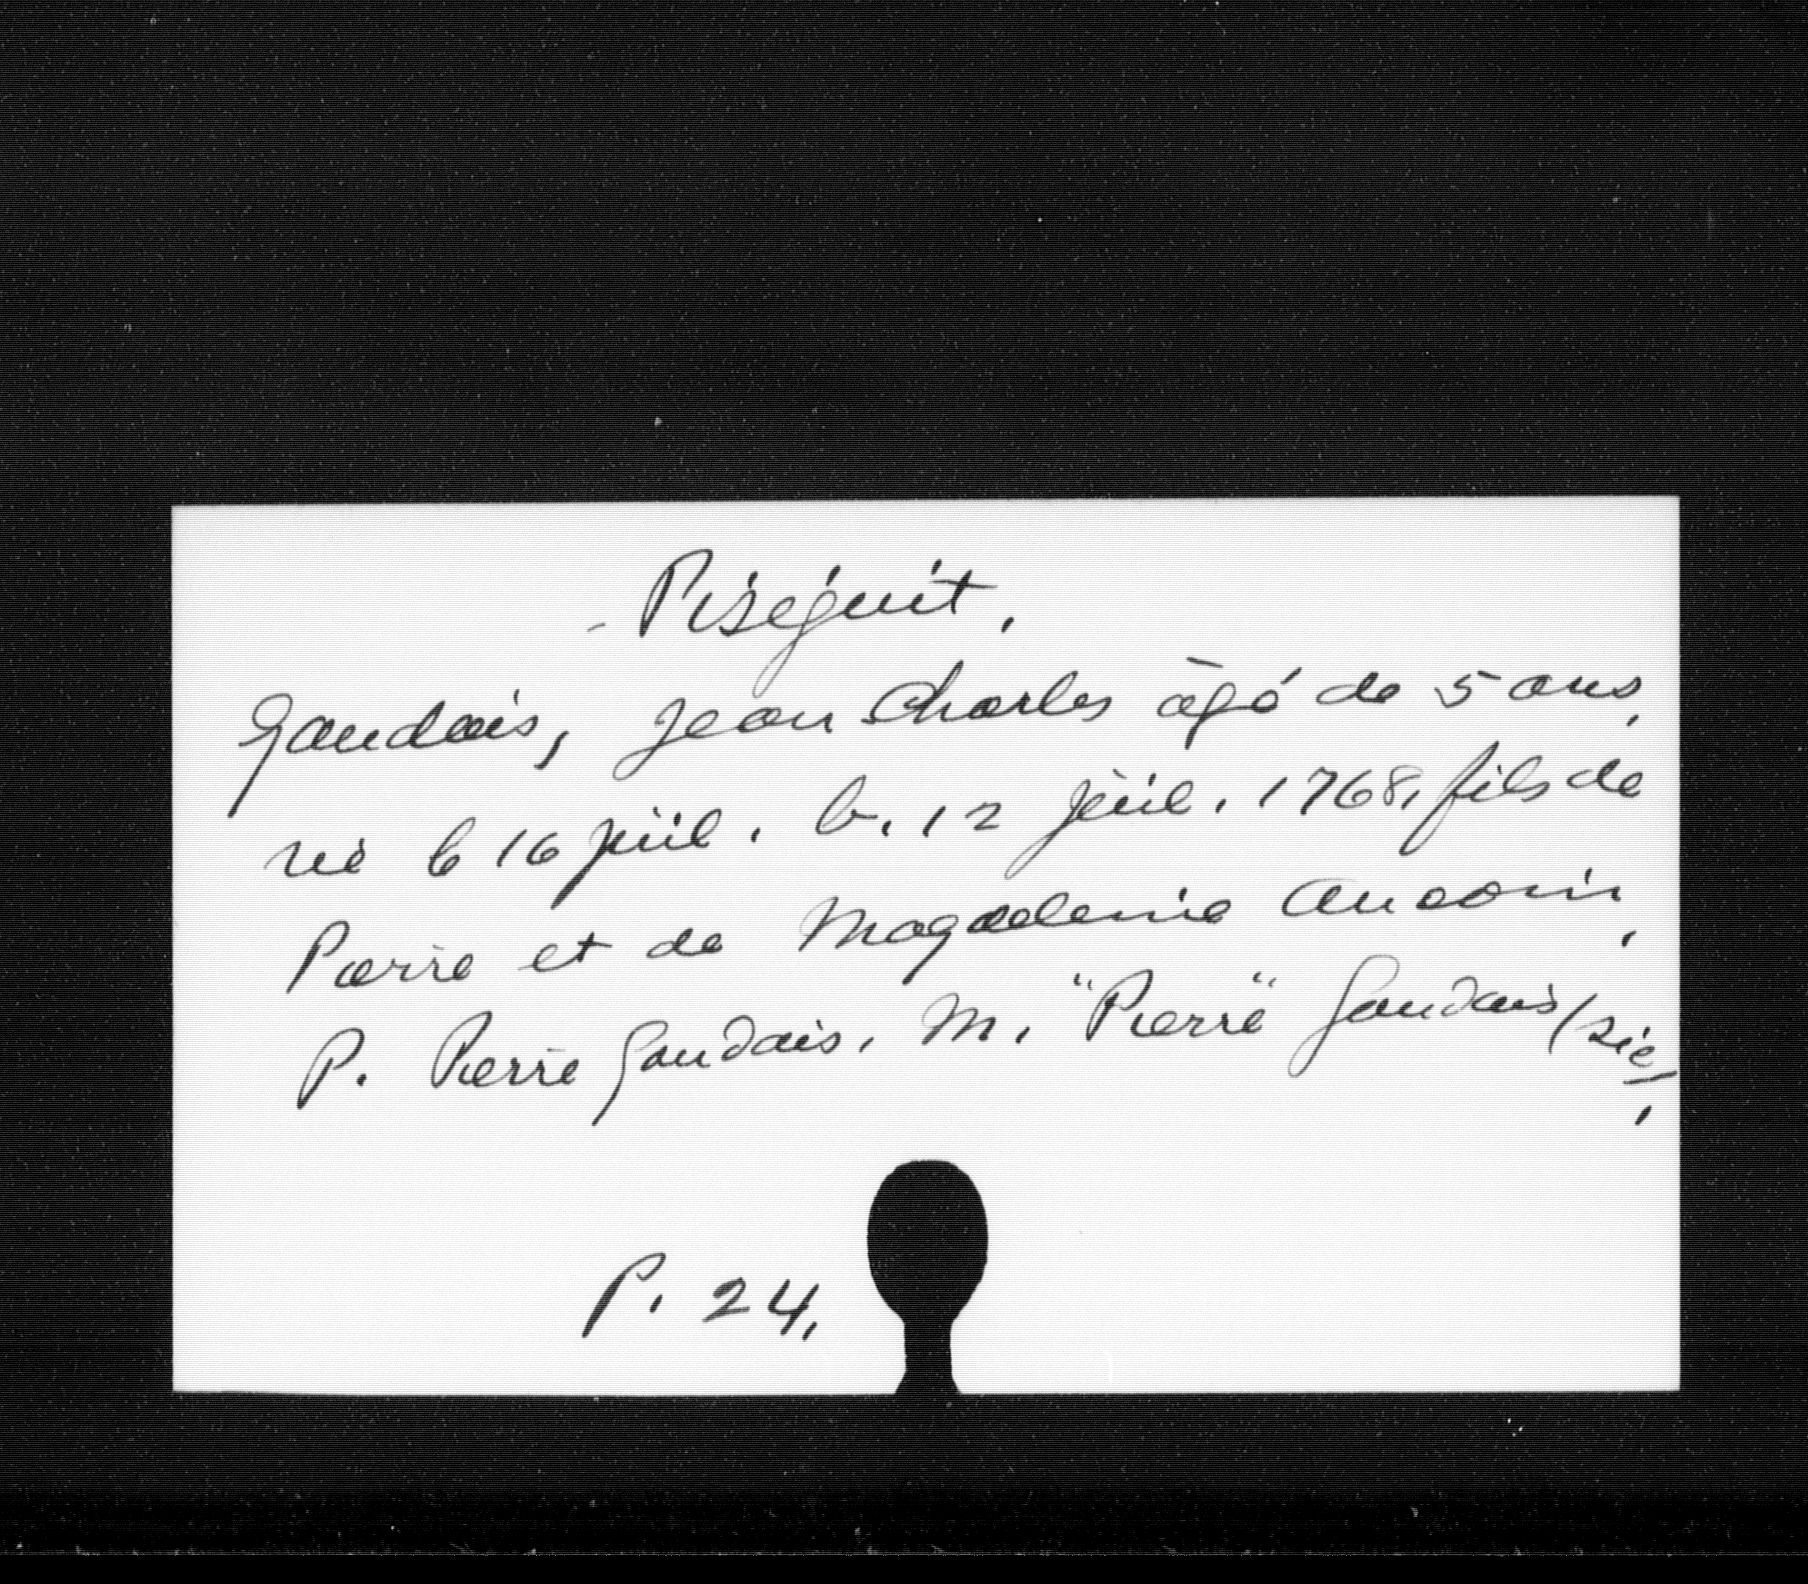 - Piséguit.
Gaudais, Jean Charles âgé de 5 ans,
né le 16 juil. b. 12 juil. 1768, fils de
Pierre et de Magdeleine Aucoin,
P. Pierre Gaudais. M. "Pierre" Gaudais (sic),
P. 24.